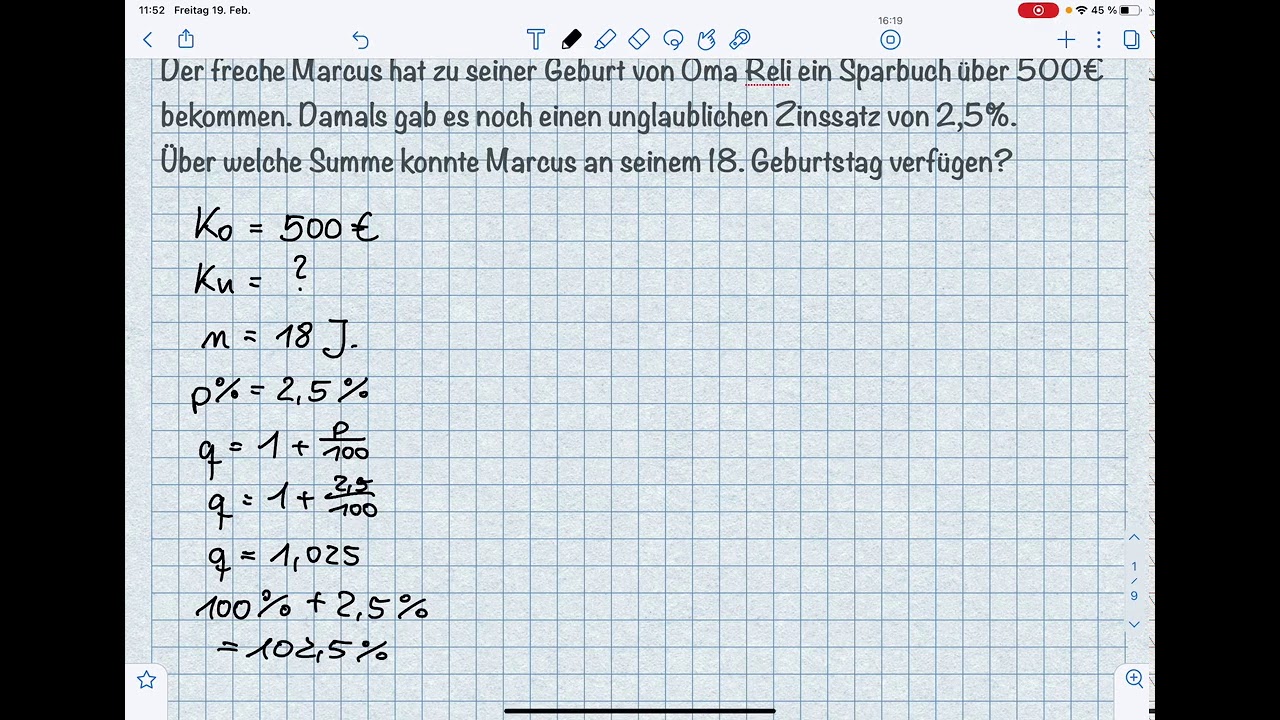 11:52 Freitag 19. Feb.
45 %
16:19
T
Der freche Marcus hat zu seiner Geburt von Oma Reli ein Sparbuch über 500€
bekommen. Damals gab es noch einen unglaublichen Zinssatz von 2,5%.
Über welche Summe konnte Marcus an seinem 18. Geburtstag verfügen?
K₀ = 500 €
Kn = ?
n = 18 J.
p% = 2,5 %
q = 1 + p/100
q = 1 + 2,5/100
q = 1,025
100 % + 2,5 %
= 102,5 %
1
/
9